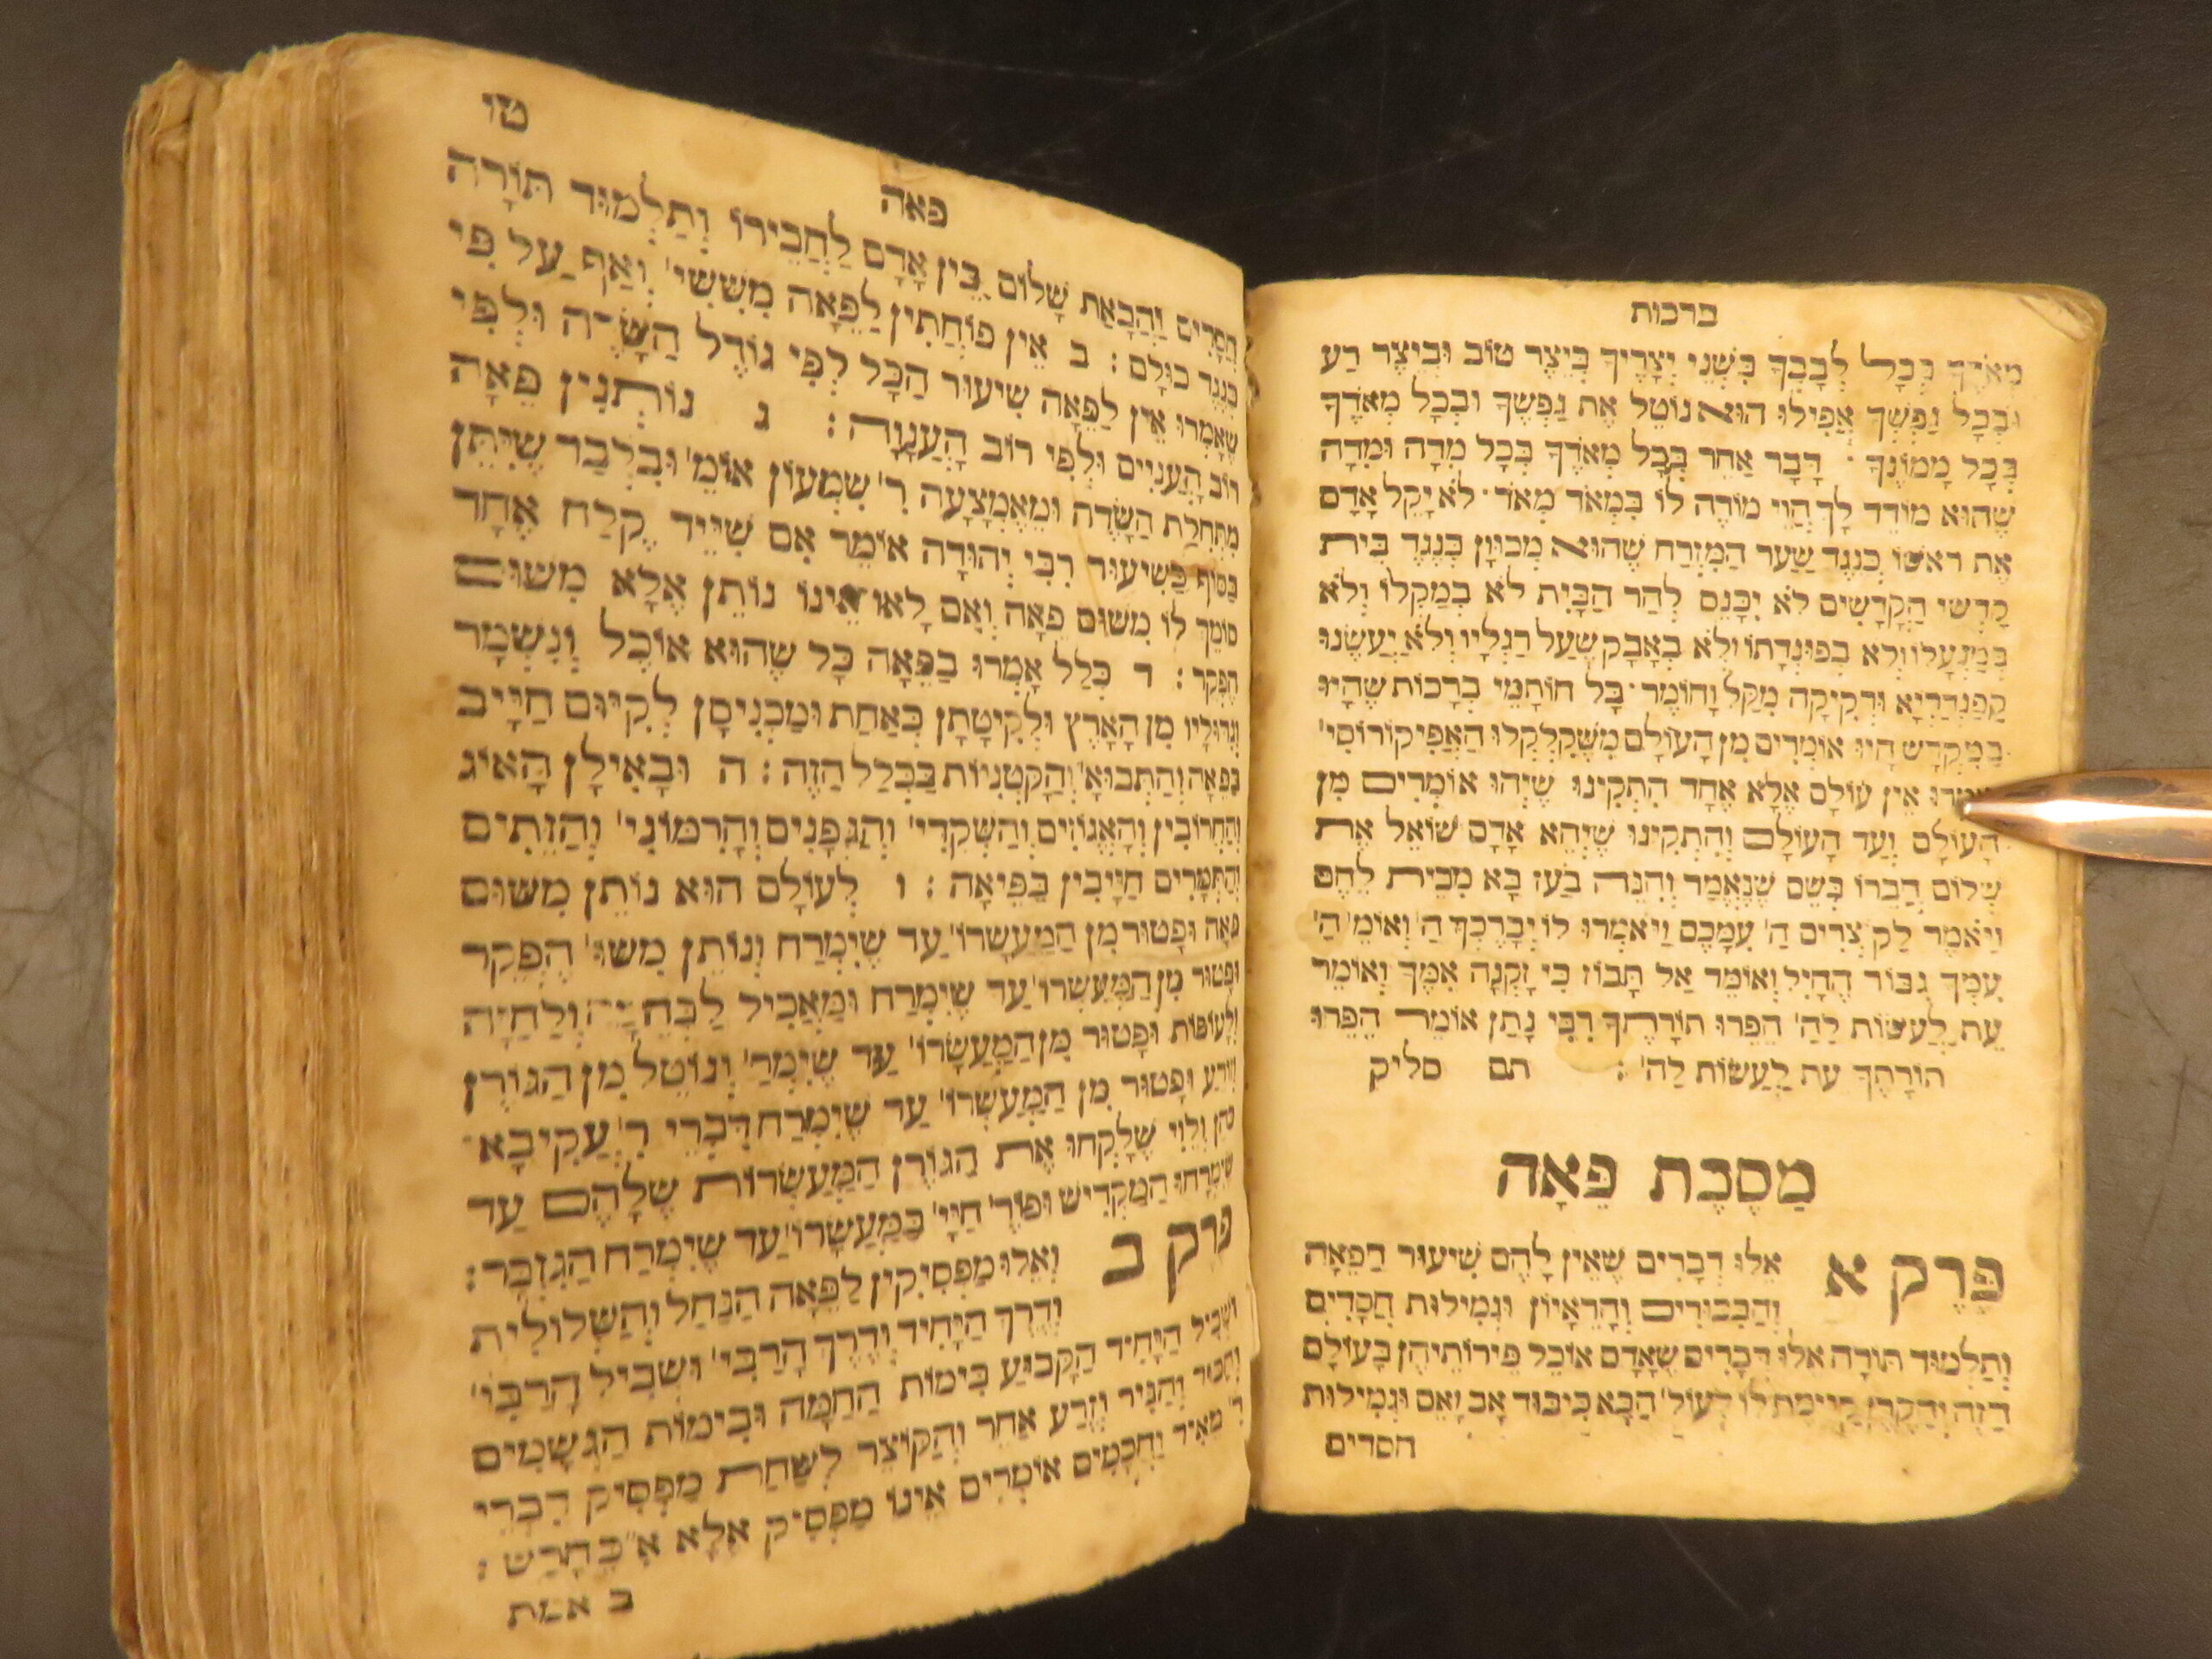 ברכות
מְאֹדֶךָ בְּכָל לְבָבְךָ בִּשְׁנֵי יְצָרֶיךָ בְּיֵצֶר טוֹב וּבְיֵצֶר רַע
וּבְכָל נַפְשְׁךָ אֲפִילוּ הוּא נוֹטֵל אֶת נַפְשֶׁךָ וּבְכָל מְאֹדֶךָ
בְּכָל מָמוֹנֶךָ · דָּבָר אַחֵר בְּכָל מְאֹדֶךָ בְּכָל מִדָּה וּמִדָּה
שֶׁהוּא מוֹדֵד לָךְ הֱוֵי מוֹדֶה לוֹ בִּמְאֹד מְאֹד · לֹא יָקֵל אָדָם
אֶת רֹאשׁוֹ כְּנֶגֶד שַׁעַר הַמִּזְרַח שֶׁהוּא מְכוּוָן כְּנֶגֶד בֵּית
קָדְשֵׁי הַקֳּדָשִׁים לֹא יִכָּנֵס לְהַר הַבַּיִת לֹא בְמַקְלוֹ וְלֹא
בְּמַנְעָלוֹ וְלֹא בְפוּנְדָתוֹ וְלֹא בְאָבָק שֶׁעַל רַגְלָיו וְלֹא יַעֲשֶׂנּוּ
קַפַּנְדַּרְיָא וּרְקִיקָה מִקַּל וָחוֹמֶר · כָּל חוֹתְמֵי בְרָכוֹת שֶׁהָיוּ
בַּמִּקְדָּשׁ הָיוּ אוֹמְרִים מִן הָעוֹלָם מִשֶּׁקִּלְקְלוּ הָאֶפִּיקוֹרוֹסִי'
אָמְרוּ אֵין עוֹלָם אֶלָּא אֶחָד הִתְקִינוּ שֶׁיְּהוּ אוֹמְרִים מִן
הָעוֹלָם וְעַד הָעוֹלָם וְהִתְקִינוּ שֶׁיְּהֵא אָדָם שׁוֹאֵל אֶת
שְׁלוֹם חֲבֵרוֹ בְּשֵׁם שֶׁנֶּאֱמַר וְהִנֵּה בֹעַז בָּא מִבֵּית לֶחֶם
וַיֹּאמֶר לַקּוֹצְרִים ה' עִמָּכֶם וַיֹּאמְרוּ לוֹ יְבָרֶכְךָ ה' וְאוֹמֵ' ה'
עִמְּךָ גִּבּוֹר הֶחָיִל וְאוֹמֵר אַל תָּבוּז כִּי זָקְנָה אִמֶּךָ וְאוֹמֵר
עֵת לַעֲשׂוֹת לַה' הֵפֵרוּ תּוֹרָתֶךָ רַבִּי נָתָן אוֹמֵר הֵפֵרוּ
תּוֹרָתֶךָ עֵת לַעֲשׂוֹת לַה' : תם סליק
מַסֶכֶת פֵּאָה
פֶּרֶק א אֵלּוּ דְבָרִים שֶׁאֵין לָהֶם שִׁיעוּר הַפֵּאָה
וְהַבִּכּוּרִים וְהָרֵאָיוֹן וּגְמִילוּת חֲסָדִים
וְתַלְמוּד תּוֹרָה אֵלּוּ דְבָרִים שֶׁאָדָם אוֹכֵל פֵּירוֹתֵיהֶן בָּעוֹלָם
הַזֶּה וְהַקֶּרֶן קַיֶּימֶת לוֹ לָעוֹל' הַבָּא כִּיבּוּד אָב וָאֵם וּגְמִילוּת
חסדים
טו
פאה
חֲסָדִים וַהֲבָאַת שָׁלוֹם בֵּין אָדָם לַחֲבֵירוֹ וְתַלְמוּד תּוֹרָה
כְּנֶגֶד כּוּלָּם : ב אֵין פּוֹחֲתִין לַפֵּאָה מִשִּׁשִּׁי' וְאַף עַל פִּי
שֶׁאָמְרוּ אֵין לַפֵּאָה שִׁיעוּר הַכָּל לְפִי גּוֹדֶל הַשָּׂדֶה וּלְפִי
רוֹב הָעֲנִיִּים וּלְפִי רוֹב הָעֲנָוָה : ג נוֹתְנִין פֵּאָה
מִתְּחִלַּת הַשָּׂדֶה וּמֵאֶמְצָעָהּ ר' שִׁמְעוֹן אוֹמֵ' וּבִלְבַד שֶׁיִּתֵּן
בַּסּוֹף כַּשִּׁיעוּר רַבִּי יְהוּדָה אוֹמֵר אִם שִׁיֵּיר קֶלַח אֶחָד
סוֹמֵךְ לוֹ מִשּׁוּם פֵּאָה וְאִם לָאו אֵינוֹ נוֹתֵן אֶלָּא מִשּׁוּם
הֶפְקֵר : ד כְּלָל אָמְרוּ בַּפֵּאָה כָּל שֶׁהוּא אוֹכֶל וְנִשְׁמָר
וְגִדּוּלָיו מִן הָאָרֶץ וּלְקִיטָתָן כְּאַחַת וּמַכְנִיסָן לְקִיּוּם חַיָּיב
בְּפֵאָה וְהַתְּבוּאָ' וְהַקִּטְנִיּוֹת בַּכְּלָל הַזֶּה : ה וּבָאִילָן הָאוֹג
וְהֶחָרוּבִין וְהָאֱגוֹזִים וְהַשְּׁקֵדִי' וְהַגְּפָנִים וְהָרִמּוֹנִי' וְהַזֵּתִים
וְהַתְּמָרִים חַיָּיבִין בַּפֵּיאָה : ו לְעוֹלָם הוּא נוֹתֵן מִשּׁוּם
פֵּאָה וּפָטוּר מִן הַמַּעַשְׂרוֹ' עַד שֶׁיְּמָרַח וְנוֹתֵן מִשּׁוּ' הֶפְקֵר
וּפָטוּר מִן הַמַּעַשְׂרוֹ' עַד שֶׁיְּמָרַח וּמַאֲכִיל לַבְּהֵמָה וְלַחַיָּה
וְלָעוֹפוֹת וּפָטוּר מִן הַמַּעַשְׂרוֹ' עַד שֶׁיְּמָרַ' וְנוֹטֵל מִן הַגּוֹרֶן
וְזוֹרֵעַ וּפָטוּר מִן הַמַּעַשְׂרוֹ' עַד שֶׁיְּמָרַח דִּבְרֵי ר' עֲקִיבָא
כֹּהֵן וְלֵוִי שֶׁלָּקְחוּ אֶת הַגּוֹרֶן הַמַּעַשְׂרוֹת שֶׁלָּהֶם עַד
שֶׁיְּמָרְחוּ הַמַּקְדִּישׁ וּפוֹדֶ' חַיָּי' בַּמַּעַשְׂרוֹ' עַד שֶׁיְּמָרַח הַגִּזְבָּר :
פֶּרֶק ב וְאֵלּוּ מַפְסִיקִין לַפֵּאָה הַנַּחַל וְהַשְּׁלוּלִית
וְדֶרֶךְ הַיָּחִיד וְדֶרֶךְ הָרַבִּי' וּשְׁבִיל הָרַבִּי'
וּשְׁבִיל הַיָּחִיד הַקָּבוּעַ בִּימוֹת הַחַמָּה וּבִימוֹת הַגְּשָׁמִים
וְהַבּוּר וְהַנִּיר וְזֶרַע אַחֵר וְהַקּוֹצֵר לְשַׁחַת מַפְסִיק דִּבְרֵי
ר' מֵאִיר וַחֲכָמִים אוֹמְרִים אֵינוֹ מַפְסִיק אֶלָּא א"כ חָרַשׁ :
ב אמת